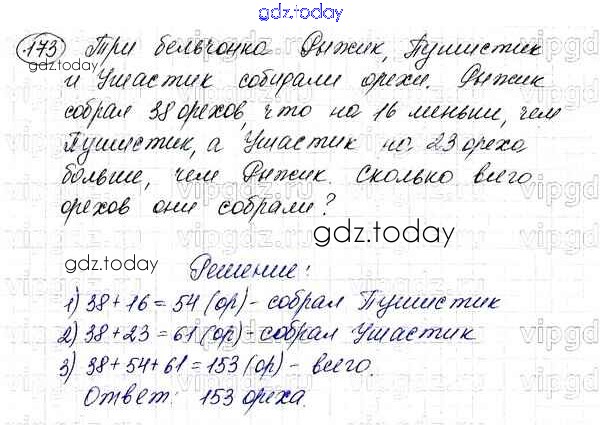 gdz.today
173 Три бельчонка Рыжик, Пушистик
gdz.today
и Ушастик собирали орехи. Рыжик
собрал 38 орехов, что на 16 меньше, чем
Пушистик, а Ушастик на 23 ореха
больше, чем Рыжик. Сколько всего
орехов они собрали?
gdz.today
gdz.today
Решение:
1) 38 + 16 = 54 (ор) - собрал Пушистик
2) 38 + 23 = 61 (ор) - собрал Ушастик
3) 38 + 54 + 61 = 153 (ор) - всего.
Ответ: 153 ореха.